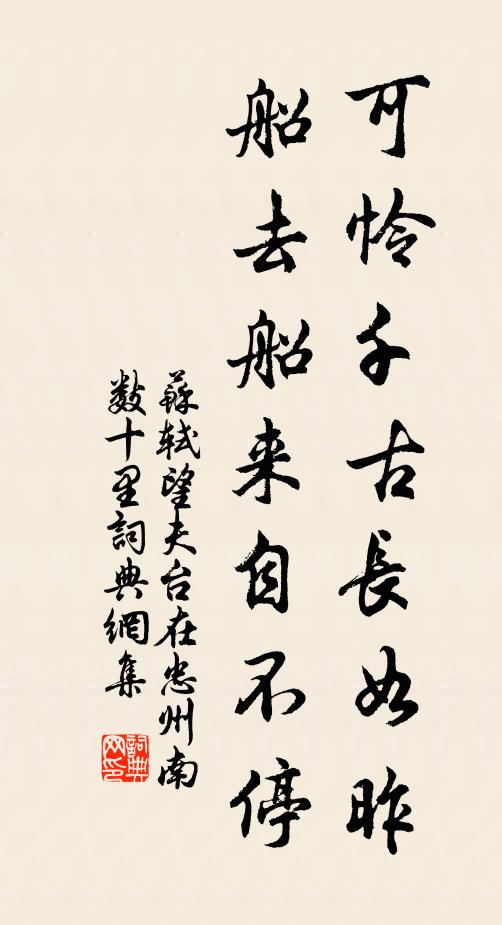 可怜千古長如昨
船去船来自不停
蘇軾望夫台在忠州南
数十里詞典網集
詞典
网印